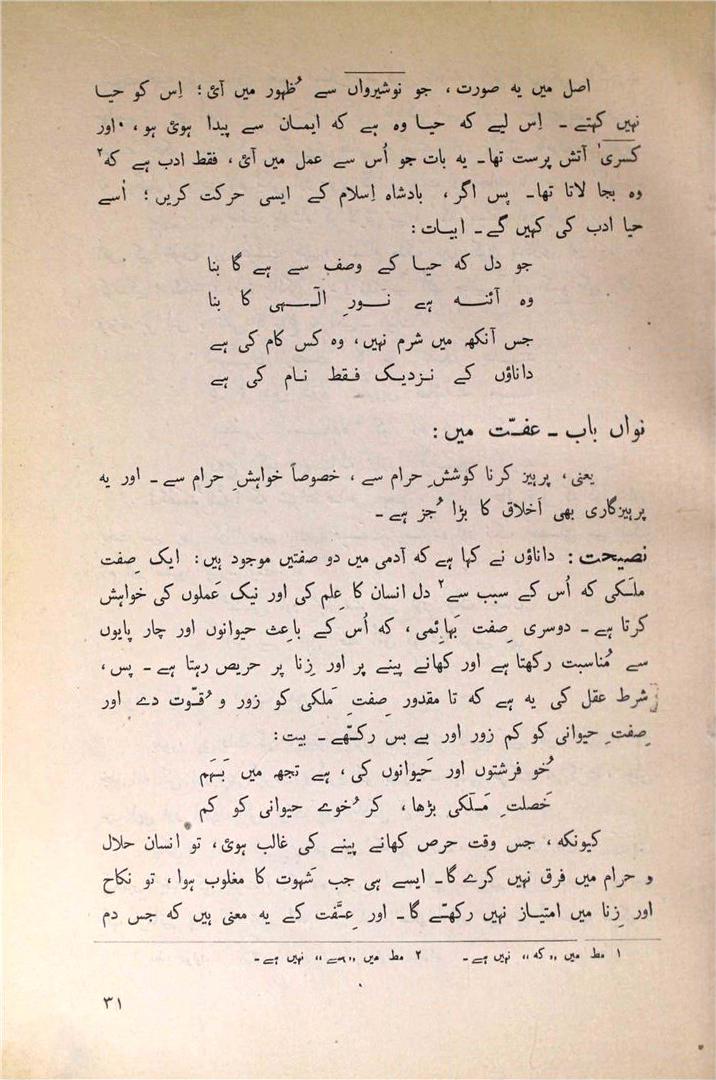 اصل میں یہ صورت، جو نوشیرواں سے ظُہور میں آئ؛ اِس کو حیا
نہیں کہتے۔ اِس لیے کہ حیا وہ ہے کہ ایمان سے پیدا ہوئ ہو، اور
کسریٰ آتش پرست تھا۔ یہ بات جو اُس سے عمل میں آئ، فقط ادب ہے کہ۲
وہ بجا لاتا تھا۔ پس اگر، بادشاہ اِسلام کے ایسی حرکت کریں؛ اُسے
حیا ادب کی کہیں گے۔ ابیات:
جو دل کہ حیا کے وصف سے ہے گا بنا
وہ آئنہ ہے نورِ الٰہی کا بنا
جس آنکھ میں شرم نہیں، وہ کس کام کی ہے
داناؤں کے نزدیک فقط نام کی ہے
نواں باب ۔ عفّت میں:
یعنی، پرہیز کرنا کوششِ حرام سے، خصوصاً خواہشِ حرام سے۔ اور یہ
پرہیزگاری بھی اَخلاق کا بڑا جُز ہے۔
نصیحت: داناؤں نے کہا ہے کہ آدمی میں دو صفتیں موجود ہیں: ایک صِفت
ملَکی کہ اُس کے سبب سے۲ دل انسان کا عِلم کی اور نیک عَملوں کی خواہش
کرتا ہے۔ دوسری صِفت بَہائِمی، کہ اُس کے باعِث حیوانوں اور چار پایوں
سے مُناسبت رکھتا ہے اور کھانے پینے پر اور زِنا پر حریص رہتا ہے۔ پس،
شرط عقل کی یہ ہے کہ تا مقدور صِفتِ مَلکی کو زور و قُوّت دے اور
صِفتِ حیوانی کو کم زور اور بے بس رکھّے۔ بیت:
خُو فرشتوں اور حَیوانوں کی، ہے تجھ میں بَہَم
خَصلتِ مَلَکی بڑھا، کر خُوے حیوانی کو کم
کیونکہ، جس وقت حرص کھانے پینے کی غالب ہوئ، تو انسان حلال
و حرام میں فرق نہیں کرے گا۔ ایسے ہی جب شَہوت کا مغلوب ہوا، تو نکاح
اور زِنا میں امتیاز نہیں رکھّے گا۔ اور عِفّت کے یہ معنی ہیں کہ جس دم
۱ مط میں ,,کہ،، نہیں ہے۔ ۲ مط میں ,,سے،، نہیں ہے۔
۳۱